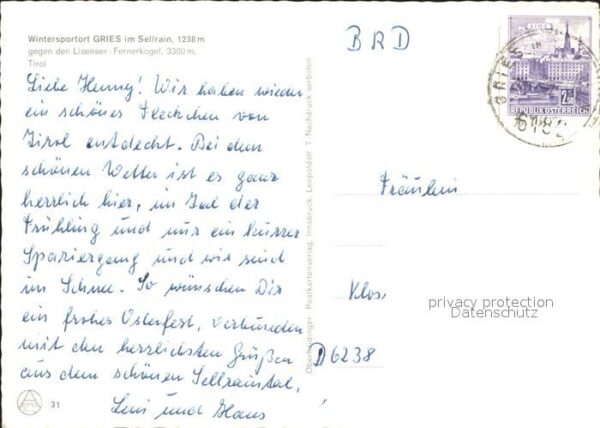 Wintersportort GRIES im Sellrain, 1238 m
gegen den Lisenser-Fernerkogel, 3300 m,
Tirol
Liebe Henny! Wir haben wieder
ein schönes Fleckchen von
Tirol entdeckt. Bei dem
schönen Wetter ist es ganz
herrlich hier, im Tal der
Frühling und nur ein kurzer
Spaziergang und wir sind
im Schnee. So wünschen Dir
ein frohes Osterfest, verbunden
mit den herzlichsten Grüßen
aus dem schönen Sellraintal,
Leni und Hans
31
Oberhaidinger Postkartenverlag, Innsbruck, Leopoldstr. 7 Nachdruck verboten
BRD
GRIES IM
2.50
REPUBLIK ÖSTERREICH
Fräulein
Klos
privacy protection
Datenschutz
D6238